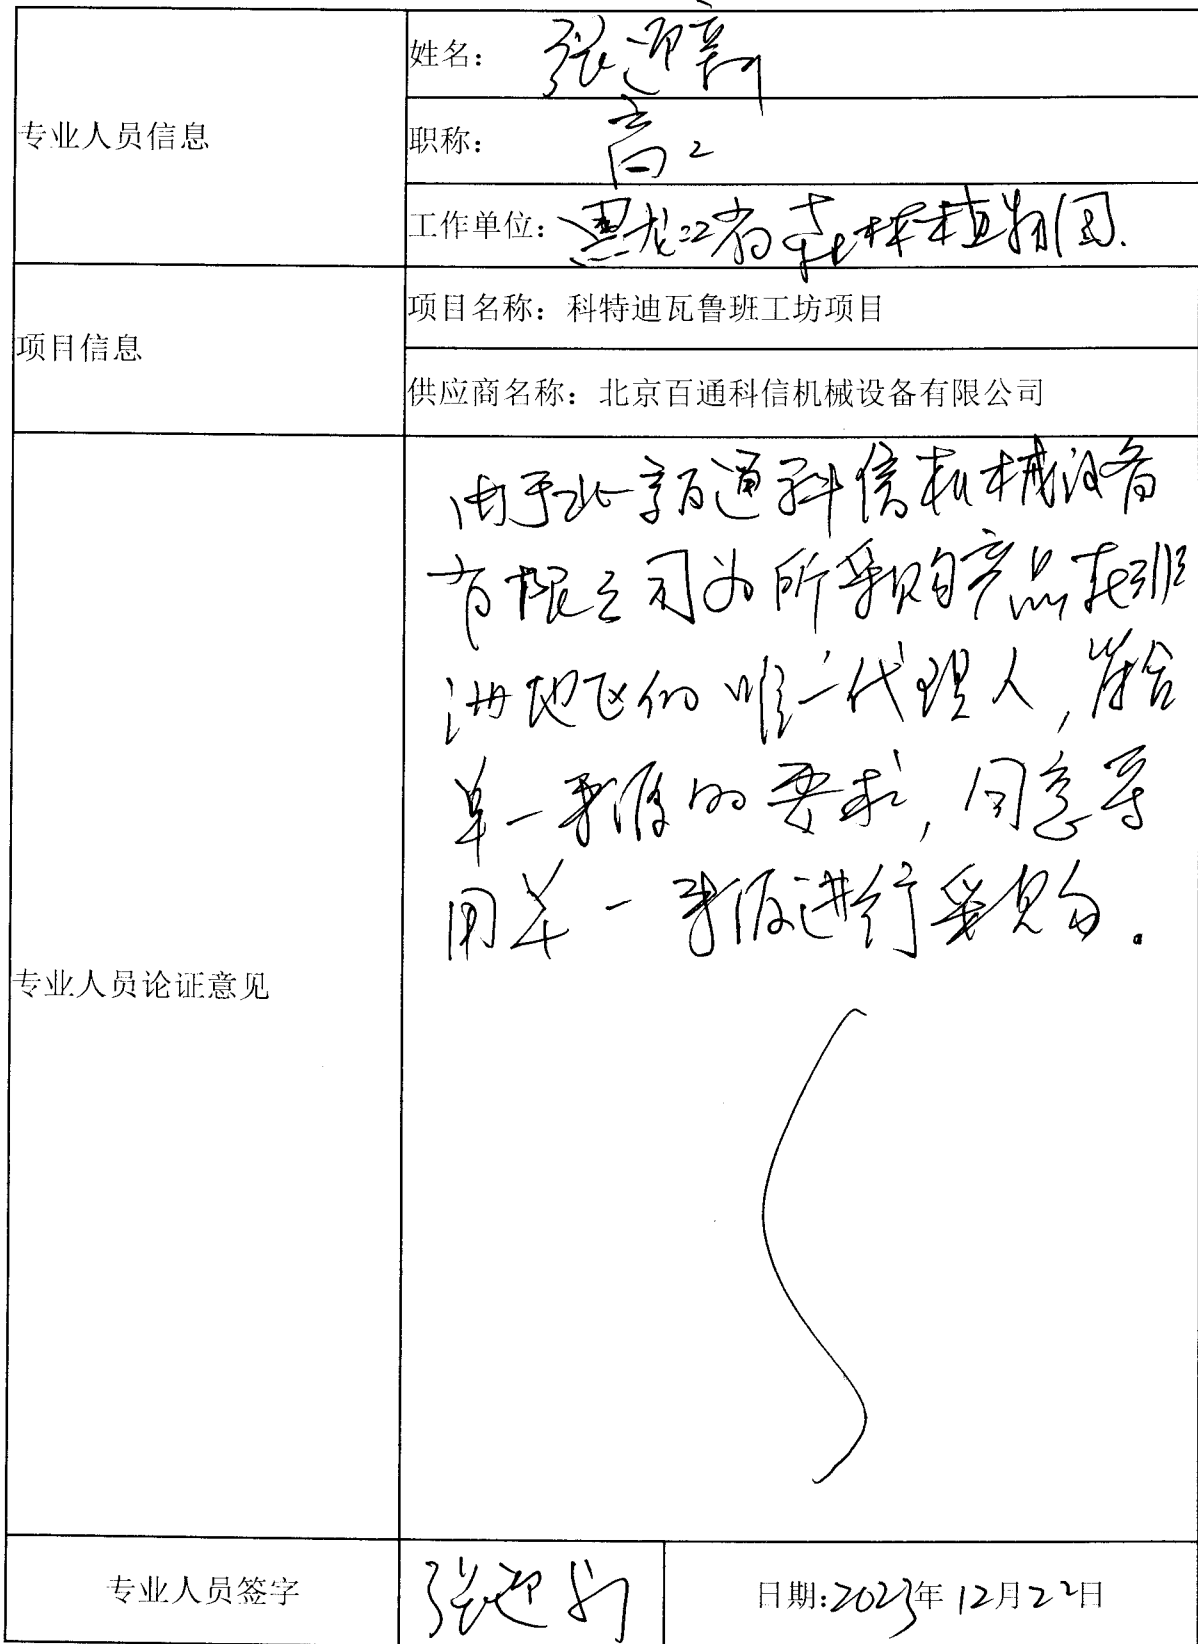 姓名：张迎新
专业人员信息
职称：高工
工作单位：黑龙江省森林植物园.
项目信息
项目名称：科特迪瓦鲁班工坊项目
供应商名称：北京百通科信机械设备有限公司
由于北京百通科信机械设备
有限公司为所采购产品在非
洲地区的唯一代理人，符合
单一来源的要求，同意等
用单一来源进行采购。
专业人员论证意见
专业人员签字
张迎新
日期:2023年12月22日